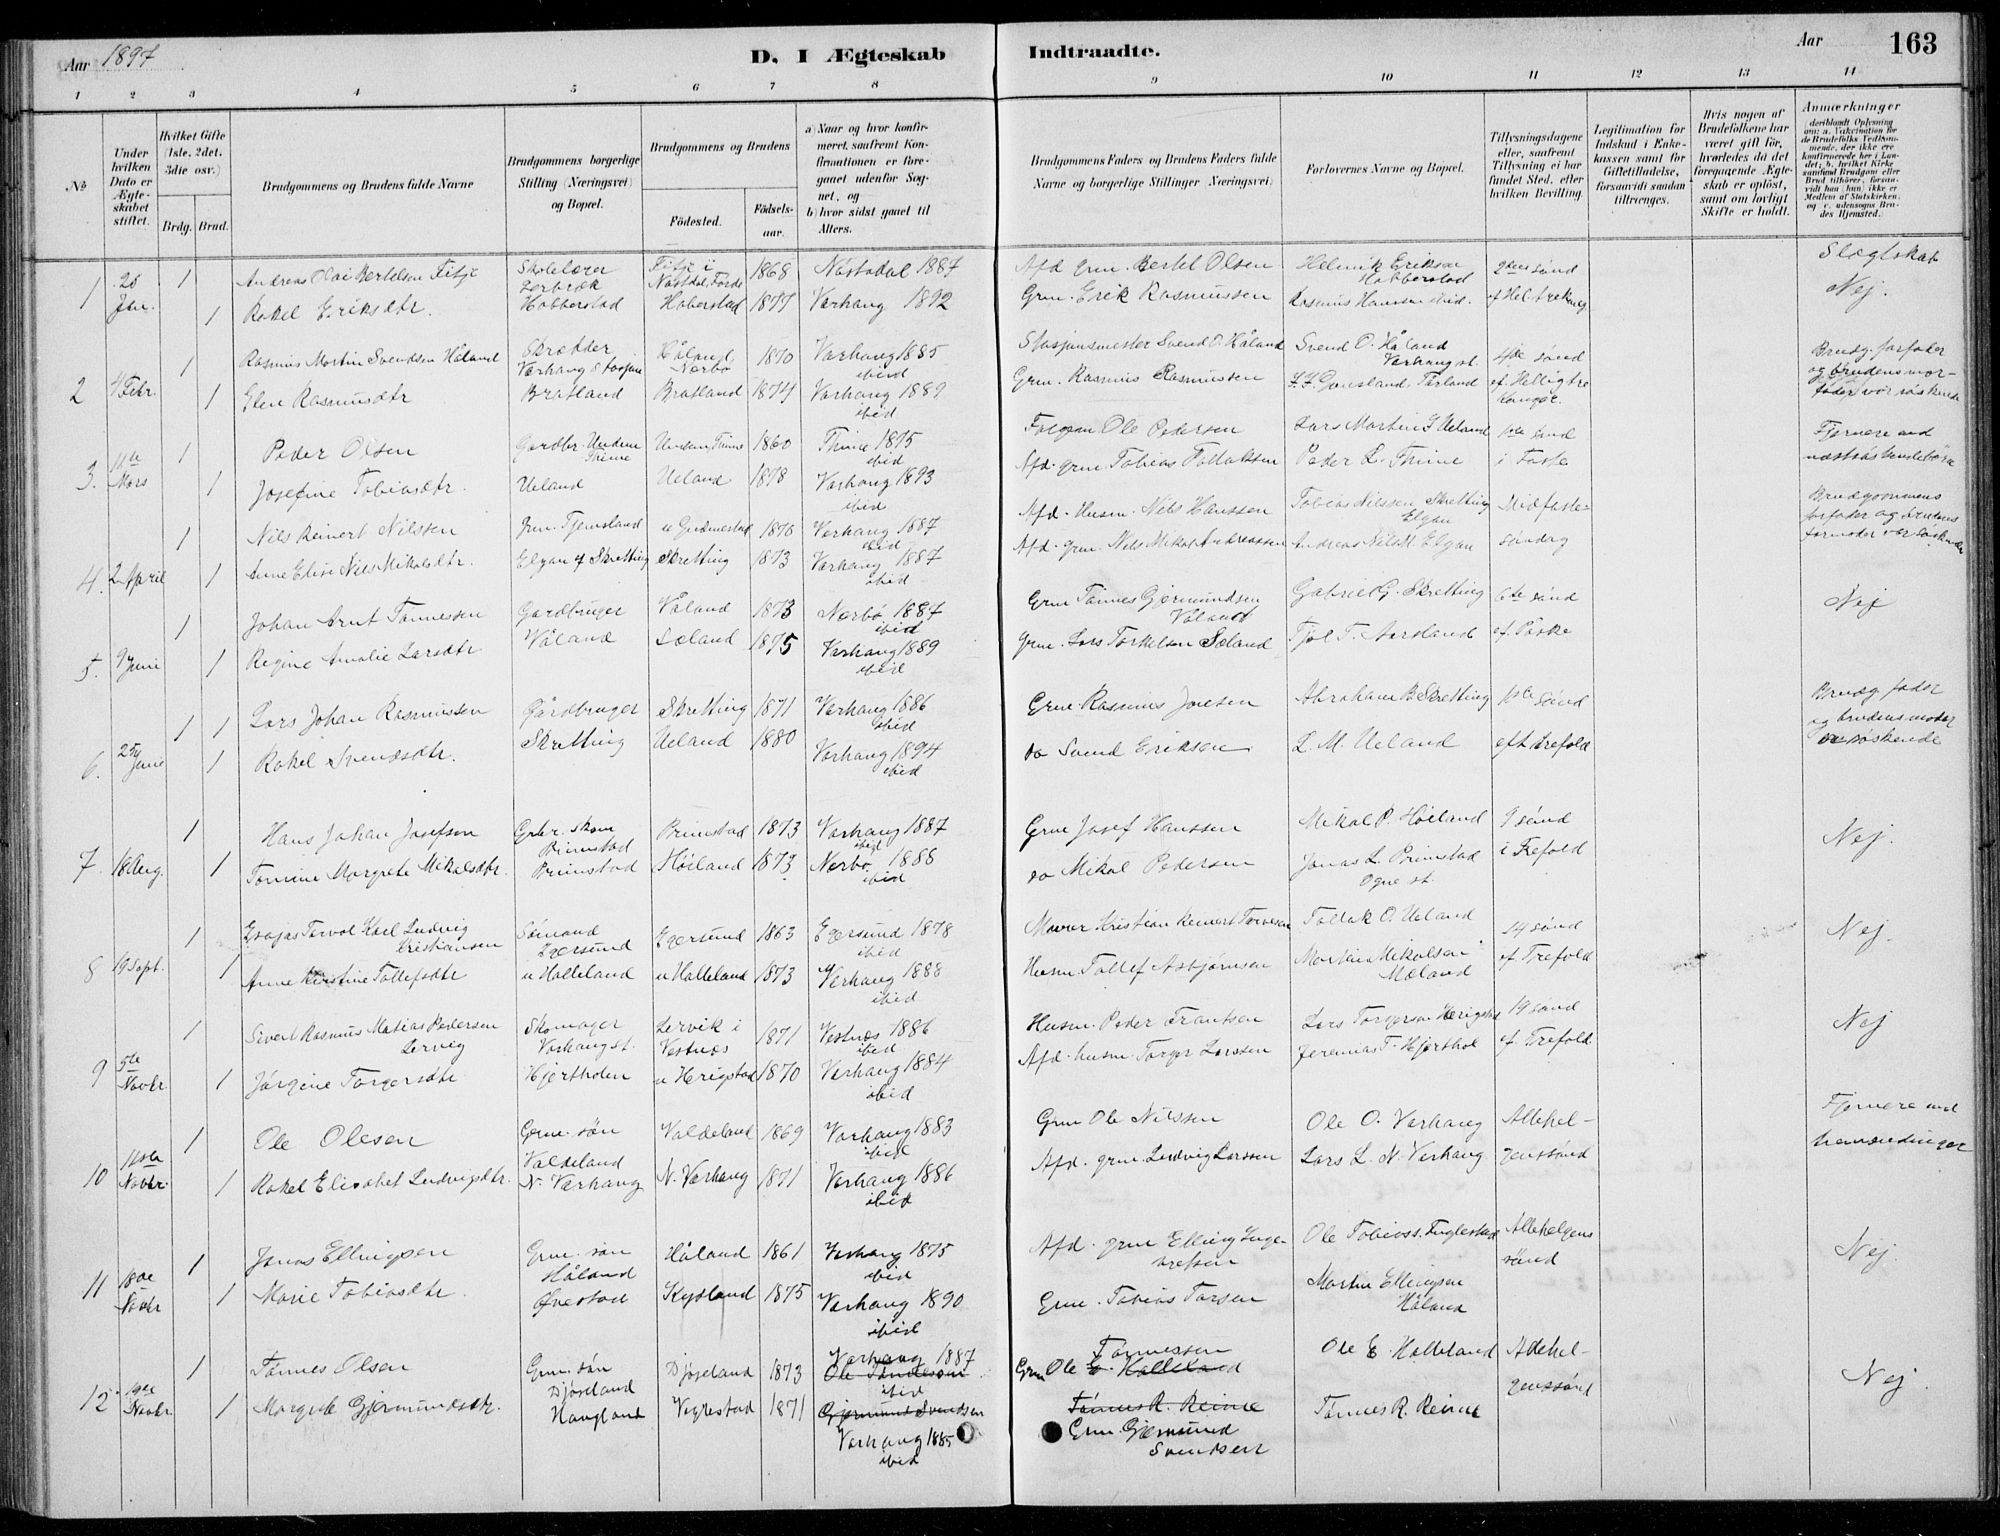 Aar 1897
D. I Ægteskab Indtraadte.
Aar 163
1 2 3 4 5 6 7 8 9 10 11 12 13 14
No
Under hvilken Dato er Ægteskabet stiftet.
Hvilket Gifte (1ste, 2det, 3die osv.)
Brdg. Brud.
Brudgommens og Brudens fulde Navne
Brudgommens borgerlige Stilling (Næringsvei) og Bopæl.
Brudgommens og Brudens
Fødested.
Fødselsaar.
a) Naar og hvor konfirmeret, saafremt Konfirmationen er foregaaet udenfor Sognet, og
b) hvor sidst gaaet til Alters.
Brudgommens Faders og Brudens Faders fulde Navne og borgerlige Stillinger (Næringsvei)
Forlovernes Navne og Bopæl.
Tillysningsdagene eller, saafremt Tillysning ei har fundet Sted, efter hvilken Bevilling.
Legitimation for Indskud i Enkekassen samt for Giftetilladelse, forsaavidt saadan tiltrænges.
Hvis nogen af Brudefolkene har været gift før, hvorledes da det foregaaende Ægteskab er opløst, samt om lovligt Skifte er holdt.
Anmærkninger
Slægtskab
1 25 Jan. 1 Andreas Olai Bertelsen Fitje Skolelærer Fitje i Nåstdal, Førde 1868 Nåstadal 1887 Afd grm. Bertel Olsen Helmik Eriksen Hobberstad 2den sønd
1 Rakel Eriksdtr. Hobberstad Hoberstad 1877 Varhaug 1892 Grm. Erik Rasmussen Rasmus Hanssen ibid. ef Hel. trekong Nej.
2 4 Febr. 1 Rasmus Martin Svendsen Håland Skrædder Varhaug stasjon Håland Nærbø 1870 Varhaug 1885 ibid Stasjonsmester Svend O. Håland Svend O. Håland Varhaug st. 4de sønd
1 Elen Rasmusdtr Bratland Bratland 1874 Varhaug 1889 ibid Grm. Rasmus Rasmussen ef. Helligtre Konger.
Brudg. farfader og brudens morfader vor søskende
3. 11te Mars 1 Peder Olsen Gardbr. Undem Thime Undem, Time 1860 Thime 1875 ibid Ole Pedersen Lars Martin S Ueland 1ste sønd
1 Josefine Tobiasdtr. Ueland Ueland 1878 Varhaug 1893 ibid Afd. grm Tobias Tollaksen Peder L. Thime i Faste
Fjernere end
4. 2 April 1 Nils Reinert Nilssen Grm. Tjemsland 1870 Varhaug 1887 ibid Afd. Husm. Nils Hanssen Tobias Nilssen Skretting Elgan Midfaste-
1 Anne Elise Nils Mikalsdtr. Elgan of Skretting Skretting 1873 Varhaug 1887 ibid Afd. grm. Nils Mikal Andreassen Andreas Nilsen Elgan søndag
Brudgommens farfader og brudens farmoder vor søskende
5. 9 Juni 1 Johan Arnt Tønnessen Gardbruger Våland 1873 Nærbø 1887 ibid Grm Tønnes Gjermundsen Våland Gabriel G. Skretting 6te sønd Nej
1 Regine Amalie Larsdtr Våland Sæland 1875 Varhaug 1889 ibid grm. Lars Torkelsen Sæland Tjøl T. Aarsland ef. Påske
6. 25 Juni 1 Lars Johan Rasmussen Gårdbruger Skretting 1871 Varhaug 1886 ibid Grm. Rasmus Jonsen Abraham B. Skretting 1ste sønd
1 Rakel Svendsdtr. Skretting Ueland 1880 Varhaug 1894 ibid do Svend Eriksen L. M. Ueland eft trefold
Brudg fader og brudens moder er søskende
7. 18 Aug. 1 Hans Johan Josefsen Grbr. Primstad 1873 Varhaug 1887 ibid Grm Josef Hanssen Mikal P. Høiland 9 sønd Nej.
1 Tomine Margrete Mikalsdtr. Primstad Høiland 1873 Nærbø 1888 ibid do Mikal Pedersen Jonas L. Primstad Ogne st. i Trefold
8 19 Sept. 1 Esajas Torval Karl Ludvig Kristiansen Sømand Egersund Egersund 1863 Egersund 1878 ibid Murer Kristian Reinert Torvesen Tollak O. Ueland 14 sønd Nej.
1 Anne Kirstine Tollefsdtr u Halleland u Halleland 1873 Varhaug 1888 ibid Husm Tollef Asbjørnsen Morten Mikalsen Mæland ef Trefold
9 5te Novbr 1 Sivert Rasmus Matias Pedersen Lervig Skomager Varhaug st. Lervik i Vestnæs 1871 Vestnæs 1886 ibid Husm. Peder Frantsen Lars Torgersen Herigstad 19 sønd Nej
1 Jørgine Torgersdtr Hjertholen u Herigstad 1870 Varhaug 1884 ibid Afd. husm. Torger Larssen Jeremias T. Hjerthol ef. Trefold
10 11te Novbr. 1 Ole Olesen Grm. søn Valdeland Valdeland 1869 Varhaug 1883 ibid Grm Ole Nilssen Ole O. Varhaug Allehel-
1 Rakel Elisabet Ludvigsdtr. N. Varhaug N. Varhaug 1871 Varhaug 1886 ibid Afd. grm. Ludvig Larssen Lars L. N. Varhaug genssønd
Fjernere end
11 18de Novbr 1 Jonas Ellingsen Grm. søn Håland Håland 1861 Varhaug 1875 ibid Afd. grm Elling Ingebretsen Ole Tobiass. Fuglestad Allehelgens Nej.
1 Marie Tobiasdtr. Øvestad Kydland 1875 Varhaug 1890 ibid Grm. Tobias Torsen Martin Ellingsen Håland sønd
12. 19de Novbr 1 Tønnes Olsen Grm. søn Djøseland Djøseland 1873 Varhaug 1887 ibid Grm Ole Tønnessen Ole E. Halleland Allehel- Nej.
1 Margrete Gjermundsdtr. Haugland Vigrestad 1871 Gjermund Svendsen Varhaug 1885 ibid Tønnes R. Reime Grm. Gjermund Svendsen Tønnes R. Reime genssønd